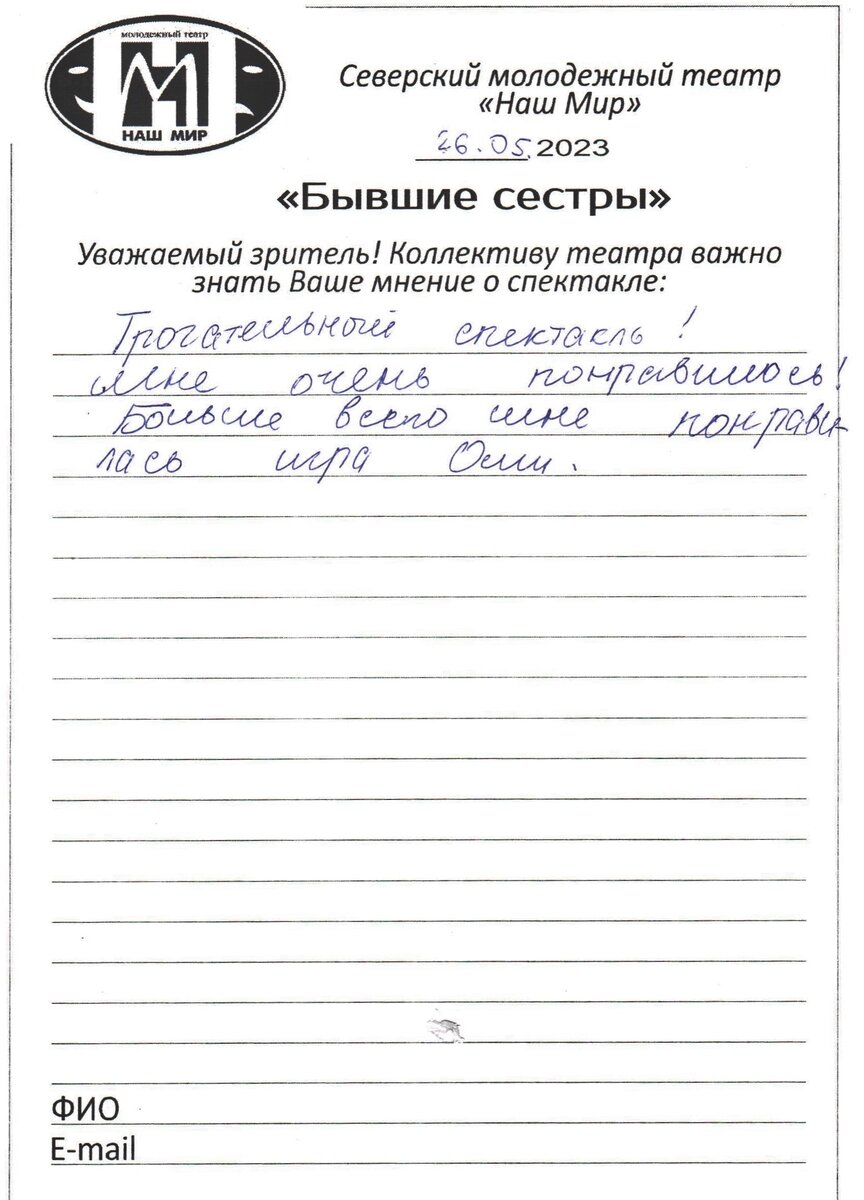 молодежный театр
НАШ МИР
Северский молодежный театр
«Наш Мир»
26.05.2023
«Бывшие сестры»
Уважаемый зритель! Коллективу театра важно
знать Ваше мнение о спектакле:
Трогательный спектакль!
Мне очень понравилось!
Больше всего мне понрави
лась игра Оли.
ФИО
E-mail